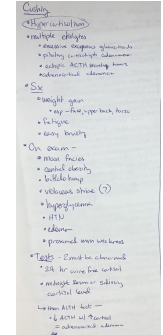 Cushing
Hypercortisolism
• multiple etiologies
• excessive exogenous glucocorticoids
• pituitary corticotroph adenoma
• ectopic ACTH secreting tumors
• adrenocortical adenoma
• Sx
• weight gain
• esp - face, upper back, torso
• fatigue
• easy bruising
• On exam -
• moon facies
• central obesity
• buffalo hump
• striae (?)
• hyperglycemia
• HTN
• edema
• proximal mm weakness
• Tests - 2 must be abnormal
• 24 hr urine free cortisol
• midnight serum or salivary
cortisol level
↳ then ACTH test —
• ↓ ACTH w/ ↑ cortisol
= adrenal adenoma